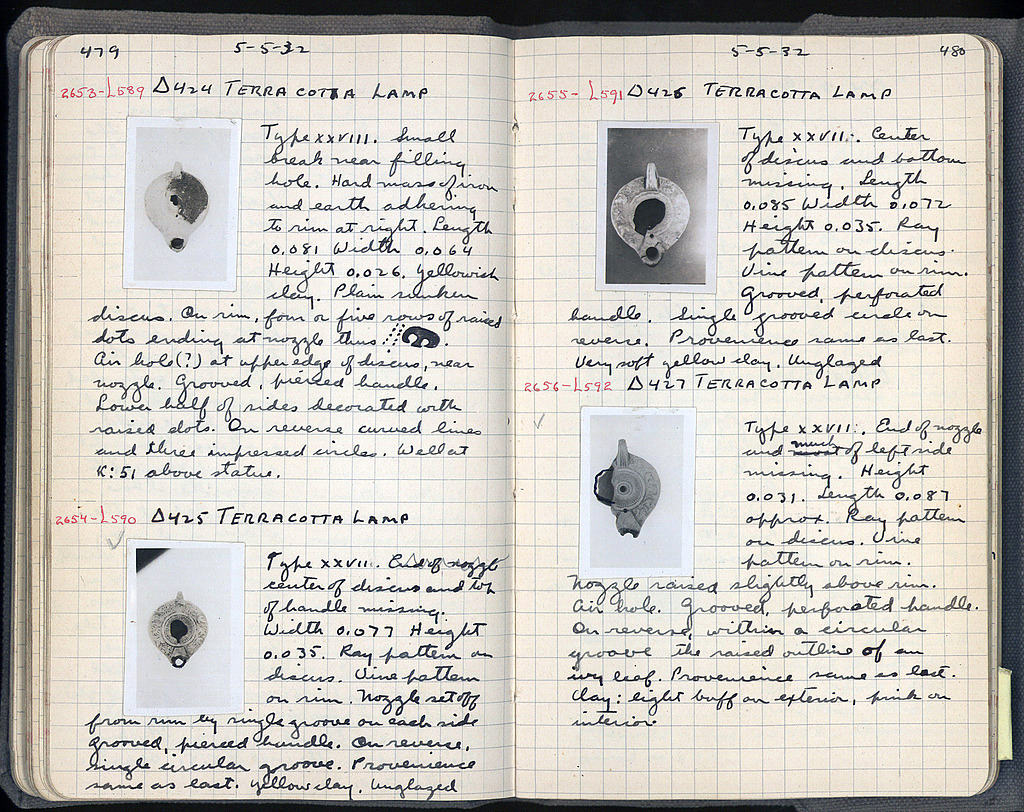 479
5-5-32
2653-L589 Δ424 TERRACOTTA LAMP
Type XXVIII. Small
break near filling
hole. Hard mass of iron
and earth adhering
to rim at right. Length
0.081 Width 0.064
Height 0.026. Yellowish
clay. Plain sunken
discus. On rim, four or five rows of raised
dots ending at nozzle thus
Air hole(?) at upper edge of discus, near
nozzle. Grooved, pierced handle.
Lower half of sides decorated with
raised dots. On reverse curved lines
and three impressed circles. Well at
K:51 above statue.
2654-L590 Δ425 TERRACOTTA LAMP
Type XXVII. End of nozzle
center of discus and top
of handle missing.
Width 0.077 Height
0.035. Ray pattern on
discus. Vine pattern
on rim. Nozzle set off
from rim by single groove on each side
grooved, pierced handle. On reverse,
single circular groove. Provenience
same as last. Yellow clay. Unglazed
5-5-32
480
2655-L591 Δ426 TERRACOTTA LAMP
Type XXVII. Center
of discus and bottom
missing. Length
0.085 Width 0.072
Height 0.035. Ray
pattern on discus.
Vine pattern on rim.
Grooved, perforated
handle. Single grooved circle on
reverse. Provenience same as last.
Very soft yellow clay. Unglazed
2656-L592 Δ427 TERRACOTTA LAMP
Type XXVII. End of nozzle
and much most of left side
missing. Height
0.031. Length 0.087
approx. Ray pattern
on discus. Vine
pattern on rim.
Nozzle raised slightly above rim.
Air hole. Grooved, perforated handle.
On reverse, within a circular
groove the raised outline of an
ivy leaf. Provenience same as last.
Clay: light buff on exterior, pink on
interior.